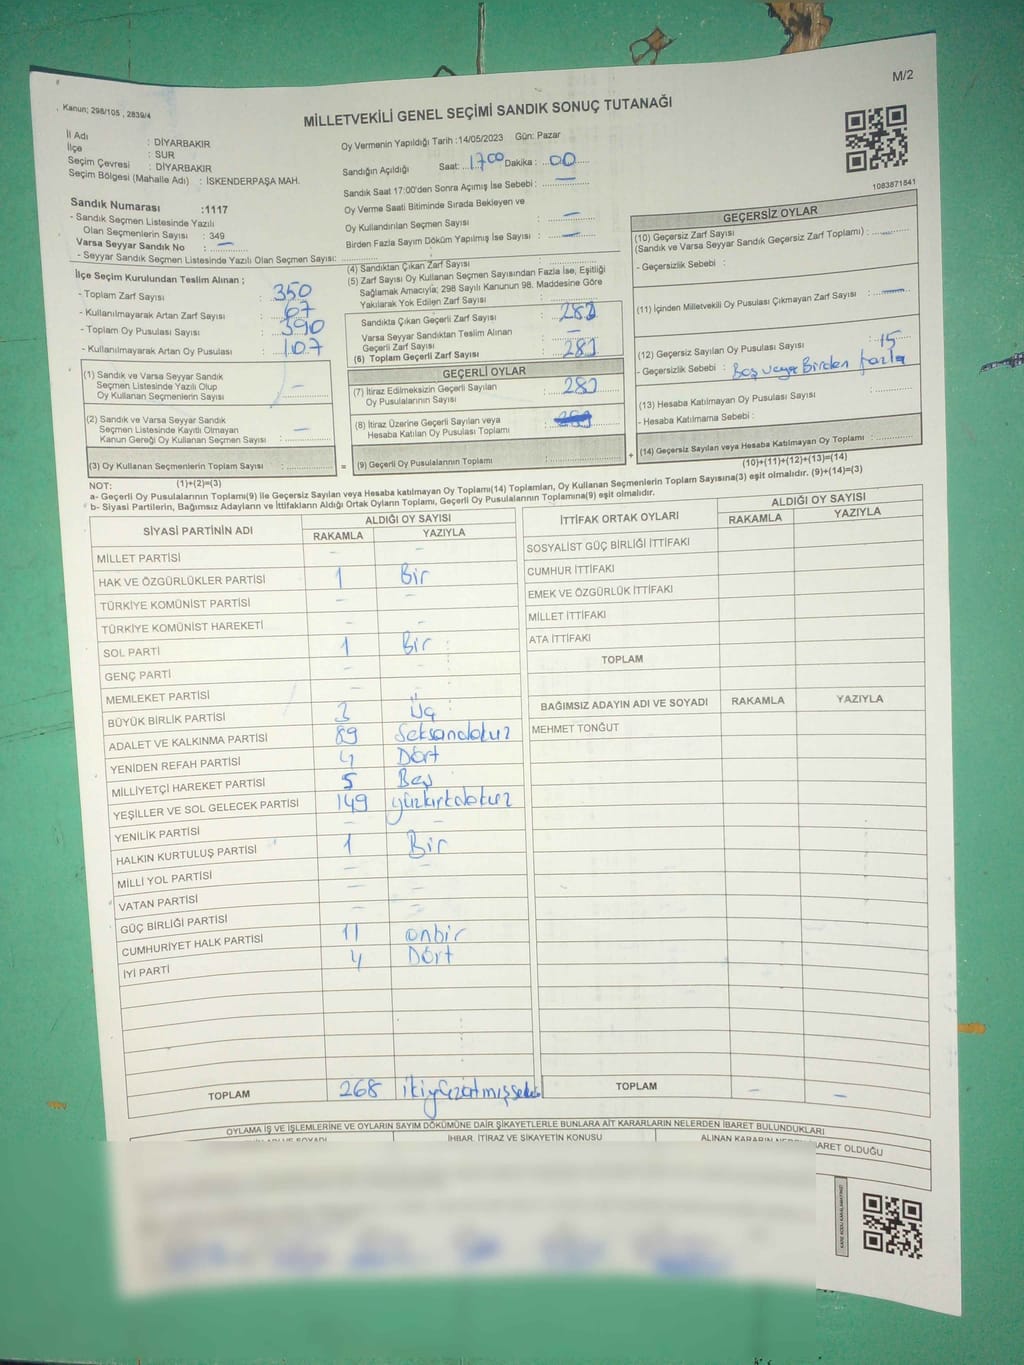 M/2
Kanun; 298/105 , 2839/4
MİLLETVEKİLİ GENEL SEÇİMİ SANDIK SONUÇ TUTANAĞI
İl Adı : DİYARBAKIR
İlçe : SUR
Seçim Çevresi : DİYARBAKIR
Seçim Bölgesi (Mahalle Adı) : İSKENDERPAŞA MAH.
Oy Vermenin Yapıldığı Tarih :14/05/2023 Gün: Pazar
Sandığın Açıldığı Saat: 1700 Dakika : 00
Sandık Saat 17:00'den Sonra Açımış İse Sebebi : —
Oy Verme Saati Bitiminde Sırada Bekleyen ve
Oy Kullandırılan Seçmen Sayısı : —
Birden Fazla Sayım Döküm Yapılmış İse Sayısı : —
1083871841
Sandık Numarası :1117
- Sandık Seçmen Listesinde Yazılı
Olan Seçmenlerin Sayısı : 349
Varsa Seyyar Sandık No : —
- Seyyar Sandık Seçmen Listesinde Yazılı Olan Seçmen Sayısı:
İlçe Seçim Kurulundan Teslim Alınan ;
- Toplam Zarf Sayısı : 350
- Kullanılmayarak Artan Zarf Sayısı : 67
- Toplam Oy Pusulası Sayısı : 390
- Kullanılmayarak Artan Oy Pusulası : 107
(1) Sandık ve Varsa Seyyar Sandık
Seçmen Listesinde Yazılı Olup
Oy Kullanan Seçmenlerin Sayısı : —
(2) Sandık ve Varsa Seyyar Sandık
Seçmen Listesinde Kayıtlı Olmayan
Kanun Gereği Oy Kullanan Seçmen Sayısı : —
(3) Oy Kullanan Seçmenlerin Toplam Sayısı :
(4) Sandıktan Çıkan Zarf Sayısı :
(5) Zarf Sayısı Oy Kullanan Seçmen Sayısından Fazla İse, Eşitliği
Sağlamak Amacıyla; 298 Sayılı Kanunun 98. Maddesine Göre
Yakılarak Yok Edilen Zarf Sayısı :
Sandıkta Çıkan Geçerli Zarf Sayısı :
Varsa Seyyar Sandıktan Teslim Alınan
Geçerli Zarf Sayısı : —
(6) Toplam Geçerli Zarf Sayısı :
GEÇERLİ OYLAR
(7) İtiraz Edilmeksizin Geçerli Sayılan
Oy Pusulalarının Sayısı :
(8) İtiraz Üzerine Geçerli Sayılan veya
Hesaba Katılan Oy Pusulası Toplamı :
= (9) Geçerli Oy Pusulalarının Toplamı : +
GEÇERSİZ OYLAR
(10) Geçersiz Zarf Sayısı
(Sandık ve Varsa Seyyar Sandık Geçersiz Zarf Toplamı) :
- Geçersizlik Sebebi :
(11) İçinden Milletvekili Oy Pusulası Çıkmayan Zarf Sayısı : —
(12) Geçersiz Sayılan Oy Pusulası Sayısı : 15
- Geçersizlik Sebebi : Boş veya Birden fazla
(13) Hesaba Katılmayan Oy Pusulası Sayısı :
- Hesaba Katılmama Sebebi :
(14) Geçersiz Sayılan veya Hesaba Katılmayan Oy Toplamı :
NOT: (1)+(2)=(3) (10)+(11)+(12)+(13)=(14)
a- Geçerli Oy Pusulalarının Toplamı(9) ile Geçersiz Sayılan veya Hesaba katılmayan Oy Toplamı(14) Toplamları, Oy Kullanan Seçmenlerin Toplam Sayısına(3) eşit olmalıdır. (9)+(14)=(3)
b- Siyasi Partilerin, Bağımsız Adayların ve İttifakların Aldığı Ortak Oyların Toplamı, Geçerli Oy Pusulalarının Toplamına(9) eşit olmalıdır.
SİYASİ PARTİNİN ADI ALDIĞI OY SAYISI
RAKAMLA YAZIYLA
MİLLET PARTİSİ — —
HAK VE ÖZGÜRLÜKLER PARTİSİ 1 Bir
TÜRKİYE KOMÜNİST PARTİSİ — —
TÜRKİYE KOMÜNİST HAREKETİ — —
SOL PARTİ 1 Bir
GENÇ PARTİ — —
MEMLEKET PARTİSİ — —
BÜYÜK BİRLİK PARTİSİ 3 Üç
ADALET VE KALKINMA PARTİSİ 89 Seksandokuz
YENİDEN REFAH PARTİSİ 4 Dört
MİLLİYETÇİ HAREKET PARTİSİ 5 Beş
YEŞİLLER VE SOL GELECEK PARTİSİ 149 yüzkırkdokuz
YENİLİK PARTİSİ — —
HALKIN KURTULUŞ PARTİSİ 1 Bir
MİLLİ YOL PARTİSİ — —
VATAN PARTİSİ — —
GÜÇ BİRLİĞİ PARTİSİ — —
CUMHURİYET HALK PARTİSİ 11 onbir
İYİ PARTİ 4 Dört
TOPLAM 268
İTTİFAK ORTAK OYLARI ALDIĞI OY SAYISI
RAKAMLA YAZIYLA
SOSYALİST GÜÇ BİRLİĞİ İTTİFAKI
CUMHUR İTTİFAKI
EMEK VE ÖZGÜRLÜK İTTİFAKI
MİLLET İTTİFAKI
ATA İTTİFAKI
TOPLAM
BAĞIMSIZ ADAYIN ADI VE SOYADI RAKAMLA YAZIYLA
MEHMET TONĞUT
TOPLAM — —
OYLAMA İŞ VE İŞLEMLERİNE VE OYLARIN SAYIM DÖKÜMÜNE DAİR ŞİKAYETLERLE BUNLARA AİT KARARLARIN NELERDEN İBARET BULUNDUKLARI
İHBAR, İTİRAZ VE ŞİKAYETİN KONUSU
ALINAN KARARIN NEDEN İBARET OLDUĞU